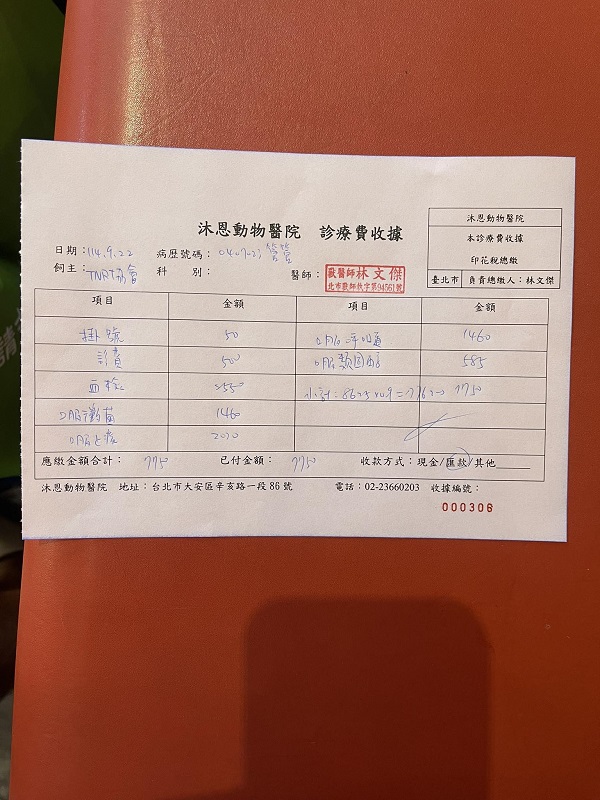 沐恩動物醫院　診療費收據
沐恩動物醫院
本診療費收據
印花稅總繳
臺北市 負責總繳人：林文傑
日期：114.9.22 病歷號碼：
飼主：TNR協會 科　別： 醫師： 獸醫師林文傑
北市獸師執字第94561號
項目 金額 項目 金額
掛號 50 1460
診費 500 585
血檢 2550 小計： 7750
1460
應繳金額合計：7750 已付金額：7750 收款方式：現金/匯款/其他
沐恩動物醫院 地址：台北市大安區辛亥路一段86號 電話：02-23660203 收據編號：
000306